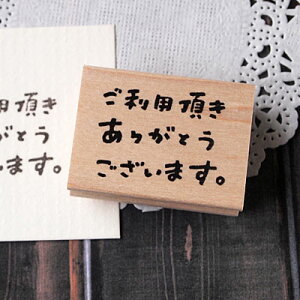 ご利用頂き
ありがとう
ございます。
利用頂き
がとう
います。